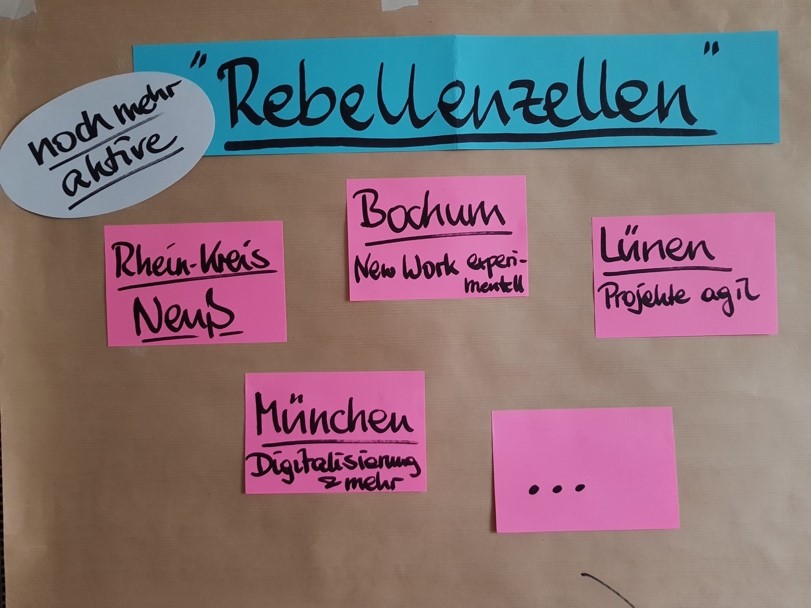 "Rebellenzellen"
noch mehr
aktive
Rhein-Kreis
Neuß
Bochum
New Work experi-
mentell
Lünen
Projekte agil
München
Digitalisierung
& mehr
...